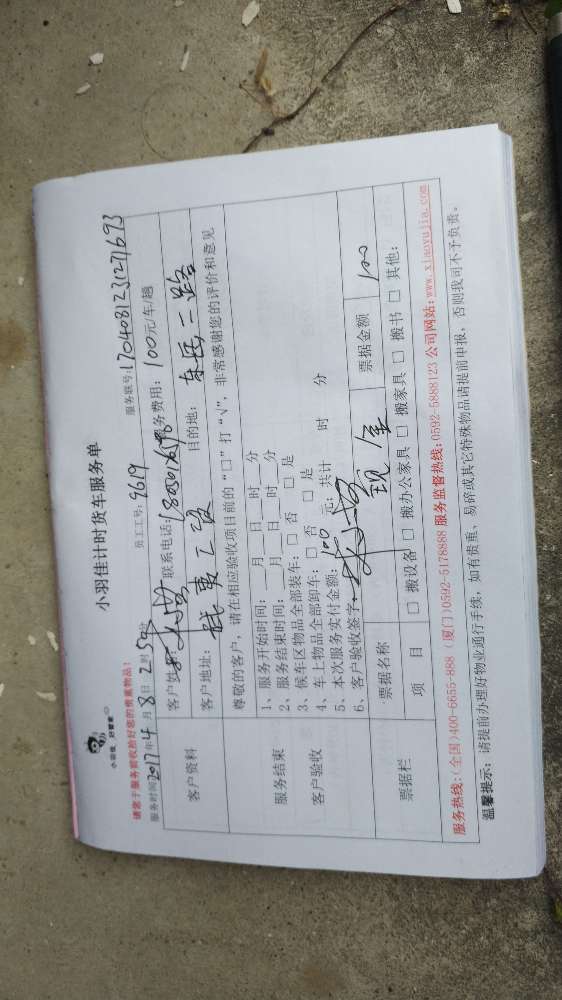 小羽佳 好管家
小羽佳计时货车服务单
请您于服务前收拾好您的贵重物品！
服务时间2017年4月8日2时50分 员工工号：9619 服务账号：1704081231271693
客户资料
客户姓名： 联系电话： 服务费用：100元/车/趟
客户地址： 目的地：东岳二路
服务结束
客户验收
尊敬的客户，请在相应验收项目前的“□”打“√”，非常感谢您的评价和意见
1、服务开始时间：__月__日__时__分
2、服务结束时间：__月__日__时__分
3、候车区物品全部装车：□ 否 □ 是
4、车上物品全部卸车：□ 否 □ 是
5、本次服务实付金额：100元；共计 时 分
6、客户验收签字：
票据栏
票据名称 现金 票据金额 100
项 目 □ 搬设备 □ 搬办公家具 □ 搬家具 □ 搬书 □ 其他：
服务热线：(全国)400-6655-888 (厦门)0592-5178888 服务监督热线：0592-5888123 公司网站：www.xiaoyujia.com
温馨提示：请提前办理好物业通行手续，如有贵重、易碎或其它特殊物品请提前申报，否则我司不予负责。